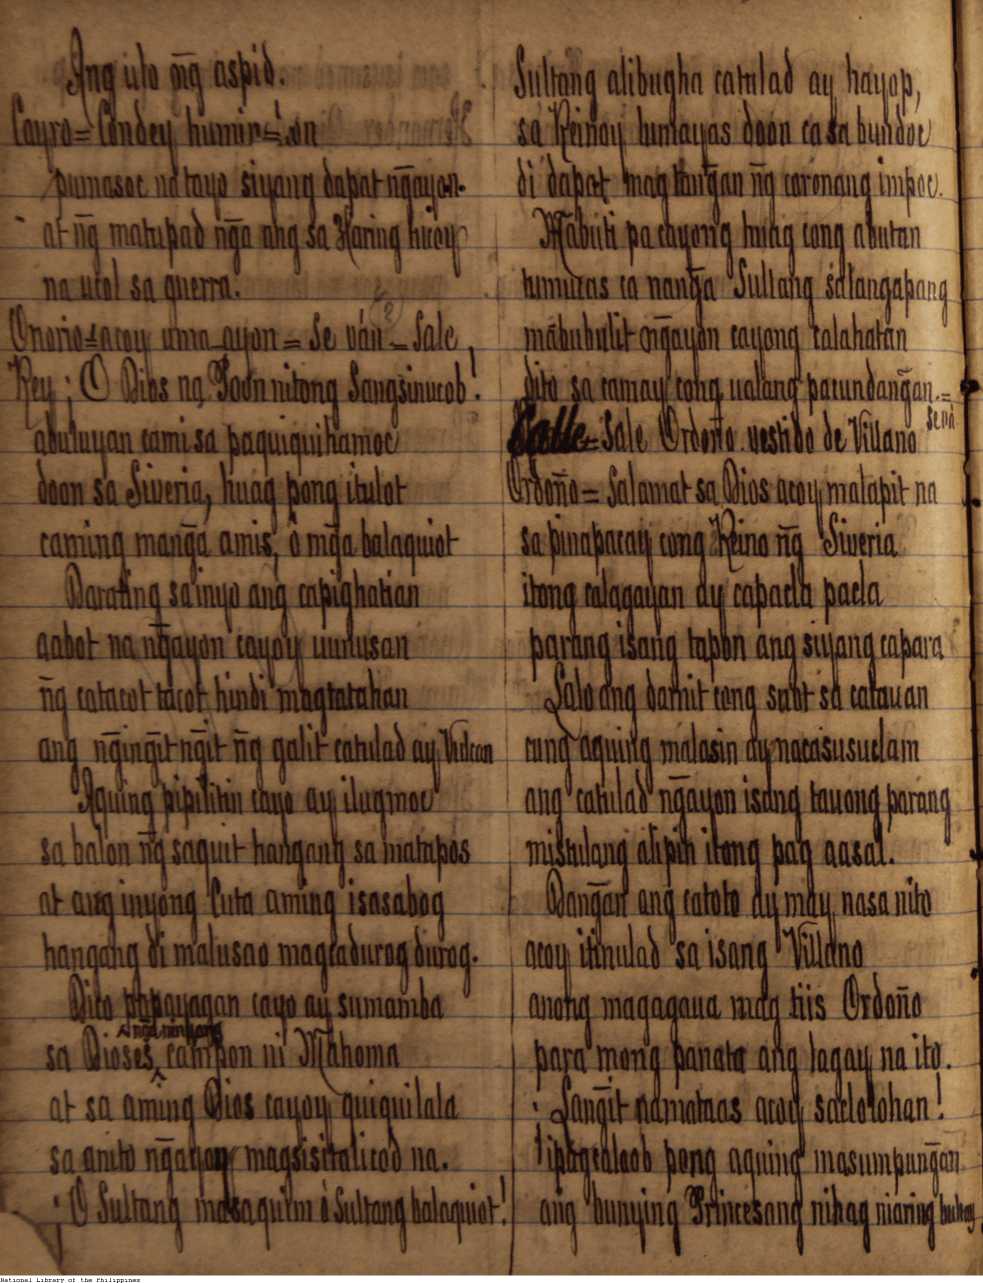 Ang ulo n̄g aspid.
Cayro = Condey humin
pumasoc na tayo siyang dapat n̄gayon.
at n̄g matupad n̄ga ang sa Haring
na utol sa guerra.
Onorio = acoy uma-ayon = Se ván = Sale
Rey ¡ O Dios na Poon nitong Sangsinucob!
abuluyan cami sa paquiquihamoc
doon sa Siveria, huag pong itulot
caming man̄ga amis, ò mn̄ga balaquiot
Darating sa inyo ang capighatian
aabot na n̄gayon cayoy uunusan
n̄g catacot tacot hindi magtatahan
ang n̄gin̄git n̄git n̄g galit catulad ay Vulcan
Aquing pipilitin cayo ay ilugmoc
sa balon n̄g saquit hangang sa matapos
at ang inyong Cuta aming isasabog
hangang di malusao magcadurog durog.
Dito papayagan cayo ay sumamba
sa Dioses, campon ni Mahoma
at sa aming Dios cayoy quiquilala
sa anito n̄gayon magsisitalicod na.
¡ O Sultang masaquim ò Sultang balaquiot!
Sultang alibugha catulad ay hayop,
sa Reinoy lumayas doon ca sa bundoc
di dapat mag tan̄gan n̄g coronang impoc.
Mabuti pa cayong tuag cong abutan
tumucas ca nan̄ga Sultang salangapang
mabubulit n̄gayon cayong calahatan
dito sa camay cong ualang pacundan̄gan. =
Se vá
Calle = Sale Ordoño vestido de Villano
Ordoño = Salamat sa Dios acoy malapit na
sa pinapacay cong Reino n̄g Siveria
itong calagayan ay capacla pacla
parang isang tapon ang siyang capara
Lalo ang damit cong suot sa catauan
cung aquing malasin ay nacasusuclam
ang catulad n̄gayon isang tauong parang
mistulang alipin itong pag aasal.
Dan̄gan ang catoto ay may nasa nito
acoy itinulad sa isang Villano
anong magagaua mag tiis Ordoño
para mong panata ang lagay na ito.
¡ Lan̄git na mataas acoy saclolohan!
ipagcaloob pong aquing masumpun̄gan
ang bunying Princesang nihag niaring buhay
National Library of the Philippines